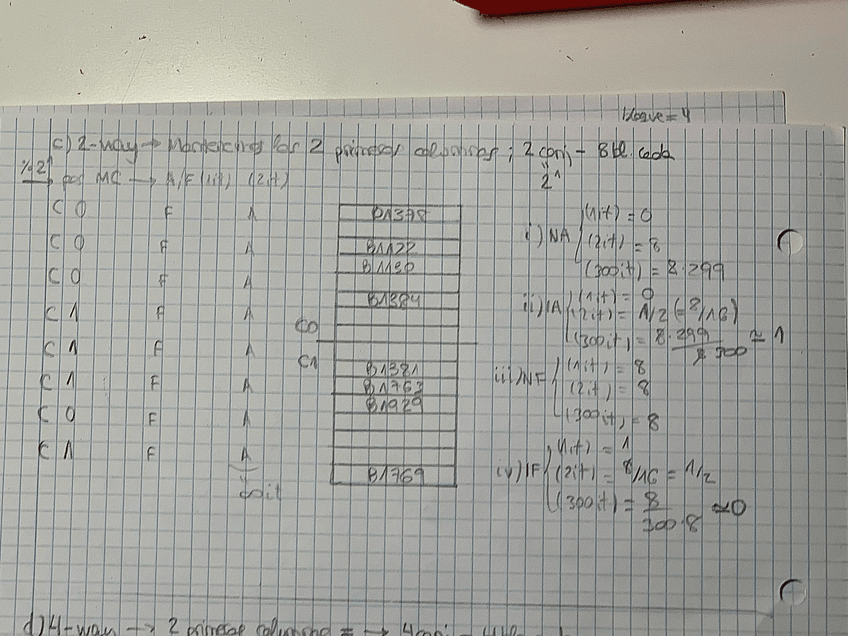 bloque = 4
c) 2-way → Mantenemos las 2 primeras columnas; 2 conj - 8 bl. cada
2¹
%2¹ pos MC → A/F (1it) (2it)
C 0 F A B1378
C 0 F A B1122
C 0 F A B1130
C 1 F A B1384
C 1 F A
C 1 F A B1381
C 0 F A B1763
C 1 F A B1929
B1769
C0
C1
i) NA (1it) = 0
(2it) = 8
(300it) = 8·299
ii) IA (1it) = 0
(2it) = 1/2 (= 8/16)
(300it) = 8·299 / 8·300 ≈ 1
iii) NF (1it) = 8
(2it) = 8
(300it) = 8
iv) IF (1it) = 1
(2it) = 8/16 = 1/2
(300it) = 8 / 300·8 ≈ 0
d) 4-way → 2 primeras columnas = → 4 conj -